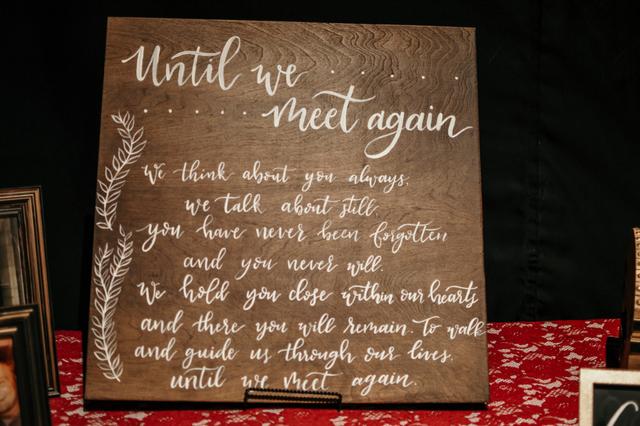 Until we
meet again
We think about you always,
we talk about still,
you have never been forgotten
and you never will.
We hold you close within our hearts
and there you will remain. To walk
and guide us through our lives,
until we meet again.